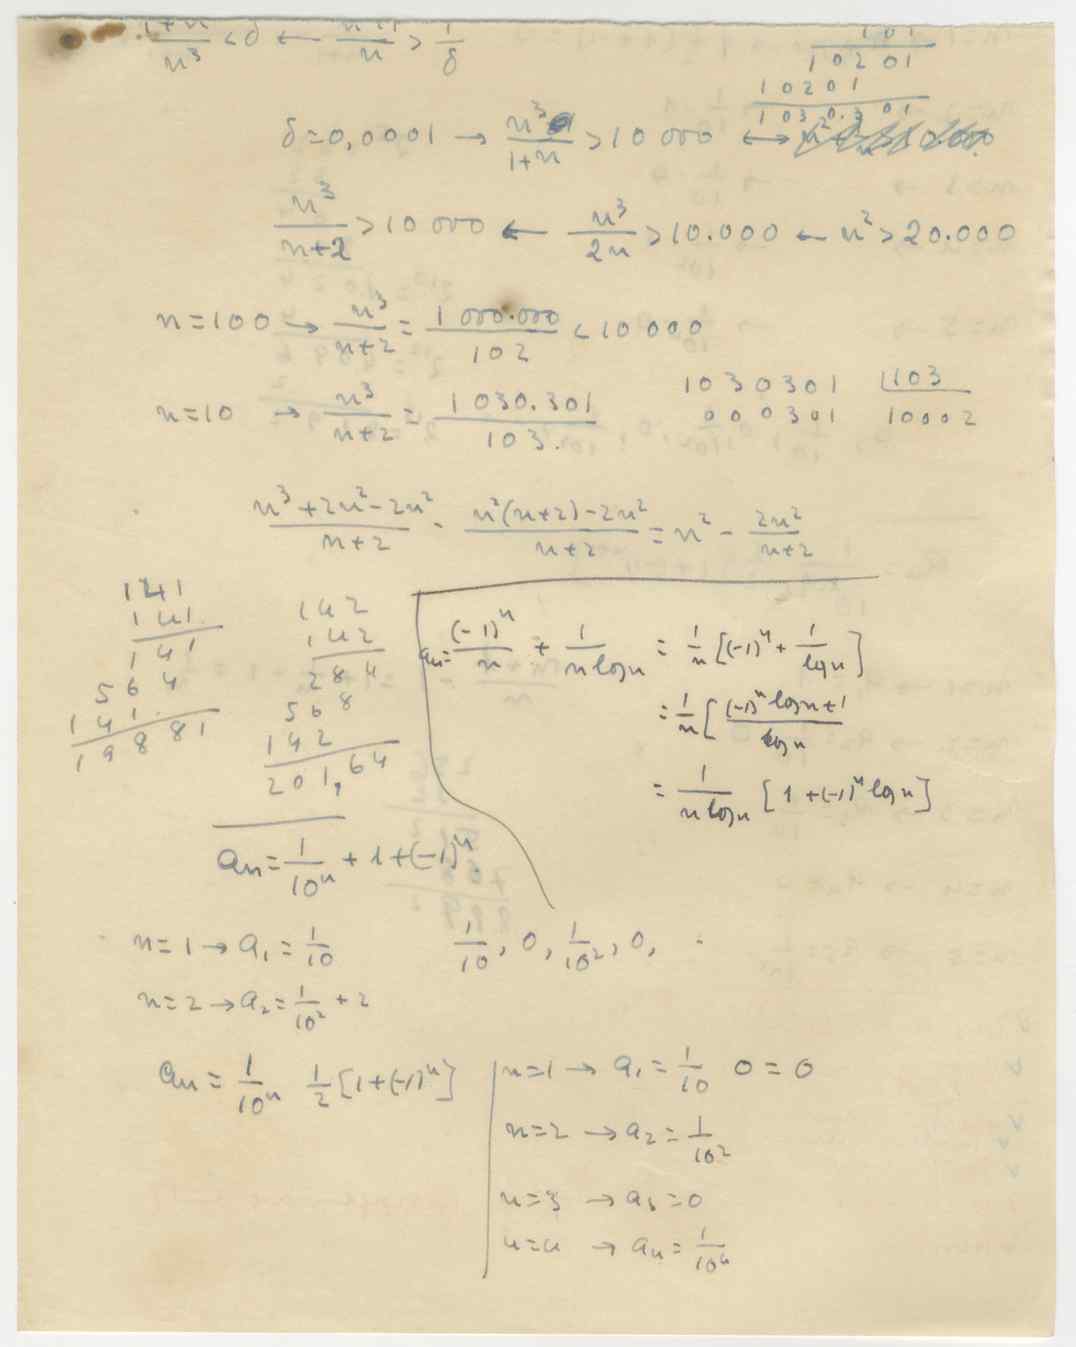 1+n/n³ < δ ← n³/n > 1/δ
101
10201
10201
1030.301
δ=0,0001 → n³/1+n > 10 000 ↔
n³/n+2 > 10 000 ← n³/2n > 10.000 ← n² > 20.000
n=100 → n³/n+2 = 1 000.000/102 < 10 000
n=10 → n³/n+2 = 1 030.301/103.
1030301 | 103
000301 10002
n³+2n²-2n²/n+2 - n²(n+2)-2n²/n+2 = n² - 2n²/n+2
141
141
141
564
141
19881
142
142
284
568
142
20164
an= (-1)ⁿ/n + 1/n log n = 1/n [(-1)ⁿ + 1/log n]
= 1/n [(-1)ⁿ log n+1/log n
= 1/n log n [1+(-1)ⁿ log n]
an = 1/10ⁿ + 1+(-1)ⁿ.
n=1 → a₁ = 1/10
1/10, 0, 1/10², 0,
n=2 → a₂ = 1/10² + 2
an = 1/10ⁿ 1/2 [1+(-1)ⁿ]
n=1 → a₁ = 1/10 0 = 0
n=2 → a₂ = 1/10²
n=3 → a₃ = 0
n=4 → a₄ = 1/10⁴